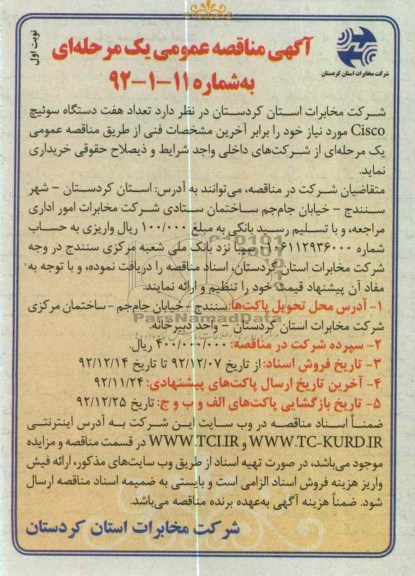 نوبت اول
شرکت مخابرات استان کردستان
آگهی مناقصه عمومی یک مرحله‌ای
به‌شماره ۱۱-۱-۹۲
شرکت مخابرات استان کردستان در نظر دارد تعداد هفت دستگاه سوئیچ
Cisco مورد نیاز خود را برابر آخرین مشخصات فنی از طریق مناقصه عمومی
یک مرحله‌ای از شرکت‌های داخلی واجد شرایط و ذیصلاح حقوقی خریداری
نماید.
متقاضیان شرکت در مناقصه، می‌توانند به آدرس: استان کردستان - شهر
سنندج - خیابان جام‌جم ساختمان ستادی شرکت مخابرات امور اداری
مراجعه، و با تسلیم رسید بانکی به مبلغ ۱۰۰/۰۰۰ ریال واریزی به حساب
شماره ۰۱۰۶۱۱۲۹۳۶۰۰۰ سیبا نزد بانک ملی شعبه مرکزی سنندج در وجه
شرکت مخابرات استان کردستان، اسناد مناقصه را دریافت نموده، و با توجه به
مفاد آن پیشنهاد قیمت خود را تنظیم و ارائه نمایند.
۱- آدرس محل تحویل پاکت‌ها: سنندج - خیابان جام‌جم - ساختمان مرکزی
شرکت مخابرات استان کردستان - واحد دبیرخانه.
۲- سپرده شرکت در مناقصه: ۴۰۰/۰۰۰/۰۰۰ ریال.
۳- تاریخ فروش اسناد: از تاریخ ۹۲/۱۲/۰۷ تا تاریخ ۹۲/۱۲/۱۴
۴- آخرین تاریخ ارسال پاکت‌های پیشنهادی: ۹۲/۱۱/۲۴
۵- تاریخ بازگشایی پاکت‌های الف و ب و ج: تاریخ ۹۲/۱۲/۲۵
ضمناً اسناد مناقصه در وب سایت این شرکت به آدرس اینترنتی
WWW.TC-KURD.IR و WWW.TCI.IR در قسمت مناقصه و مزایده
موجود می‌باشد، در صورت تهیه اسناد از طریق وب سایت‌های مذکور، ارائه فیش
واریز هزینه فروش اسناد الزامی است و بایستی به ضمیمه اسناد مناقصه ارسال
شود. ضمناً هزینه آگهی به‌عهده برنده مناقصه می‌باشد.
شرکت مخابرات استان کردستان
ParsNamadData